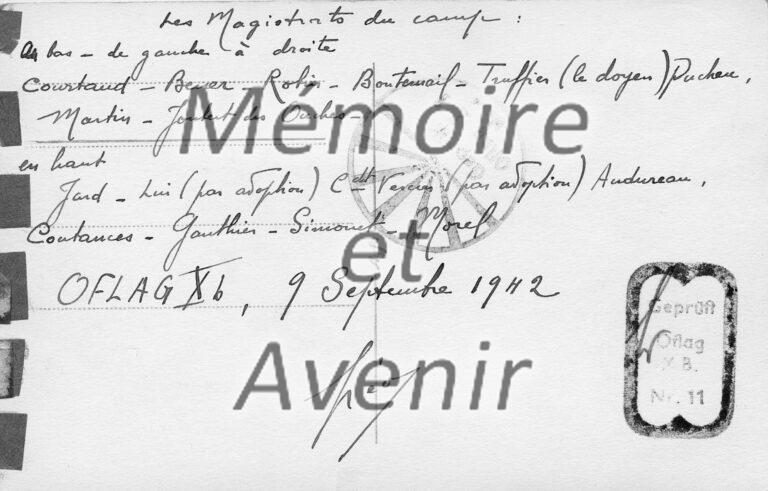 Les Magistrats du camp :
en bas - de gauche à droite
Courtaud - Bever - Robin - Boutemail - Truffier (le doyen) Ducheu,
Martin - Joubert des Ouches -
en haut
Jard - Lui (par adoption) Cdt (par adoption) Audureau,
Coutances - Gauthier - Simonet - Morel
OFLAG Xb, 9 Septembre 1942
Mémoire
et
Avenir
Geprüft
Oflag
X B.
Nr. 11